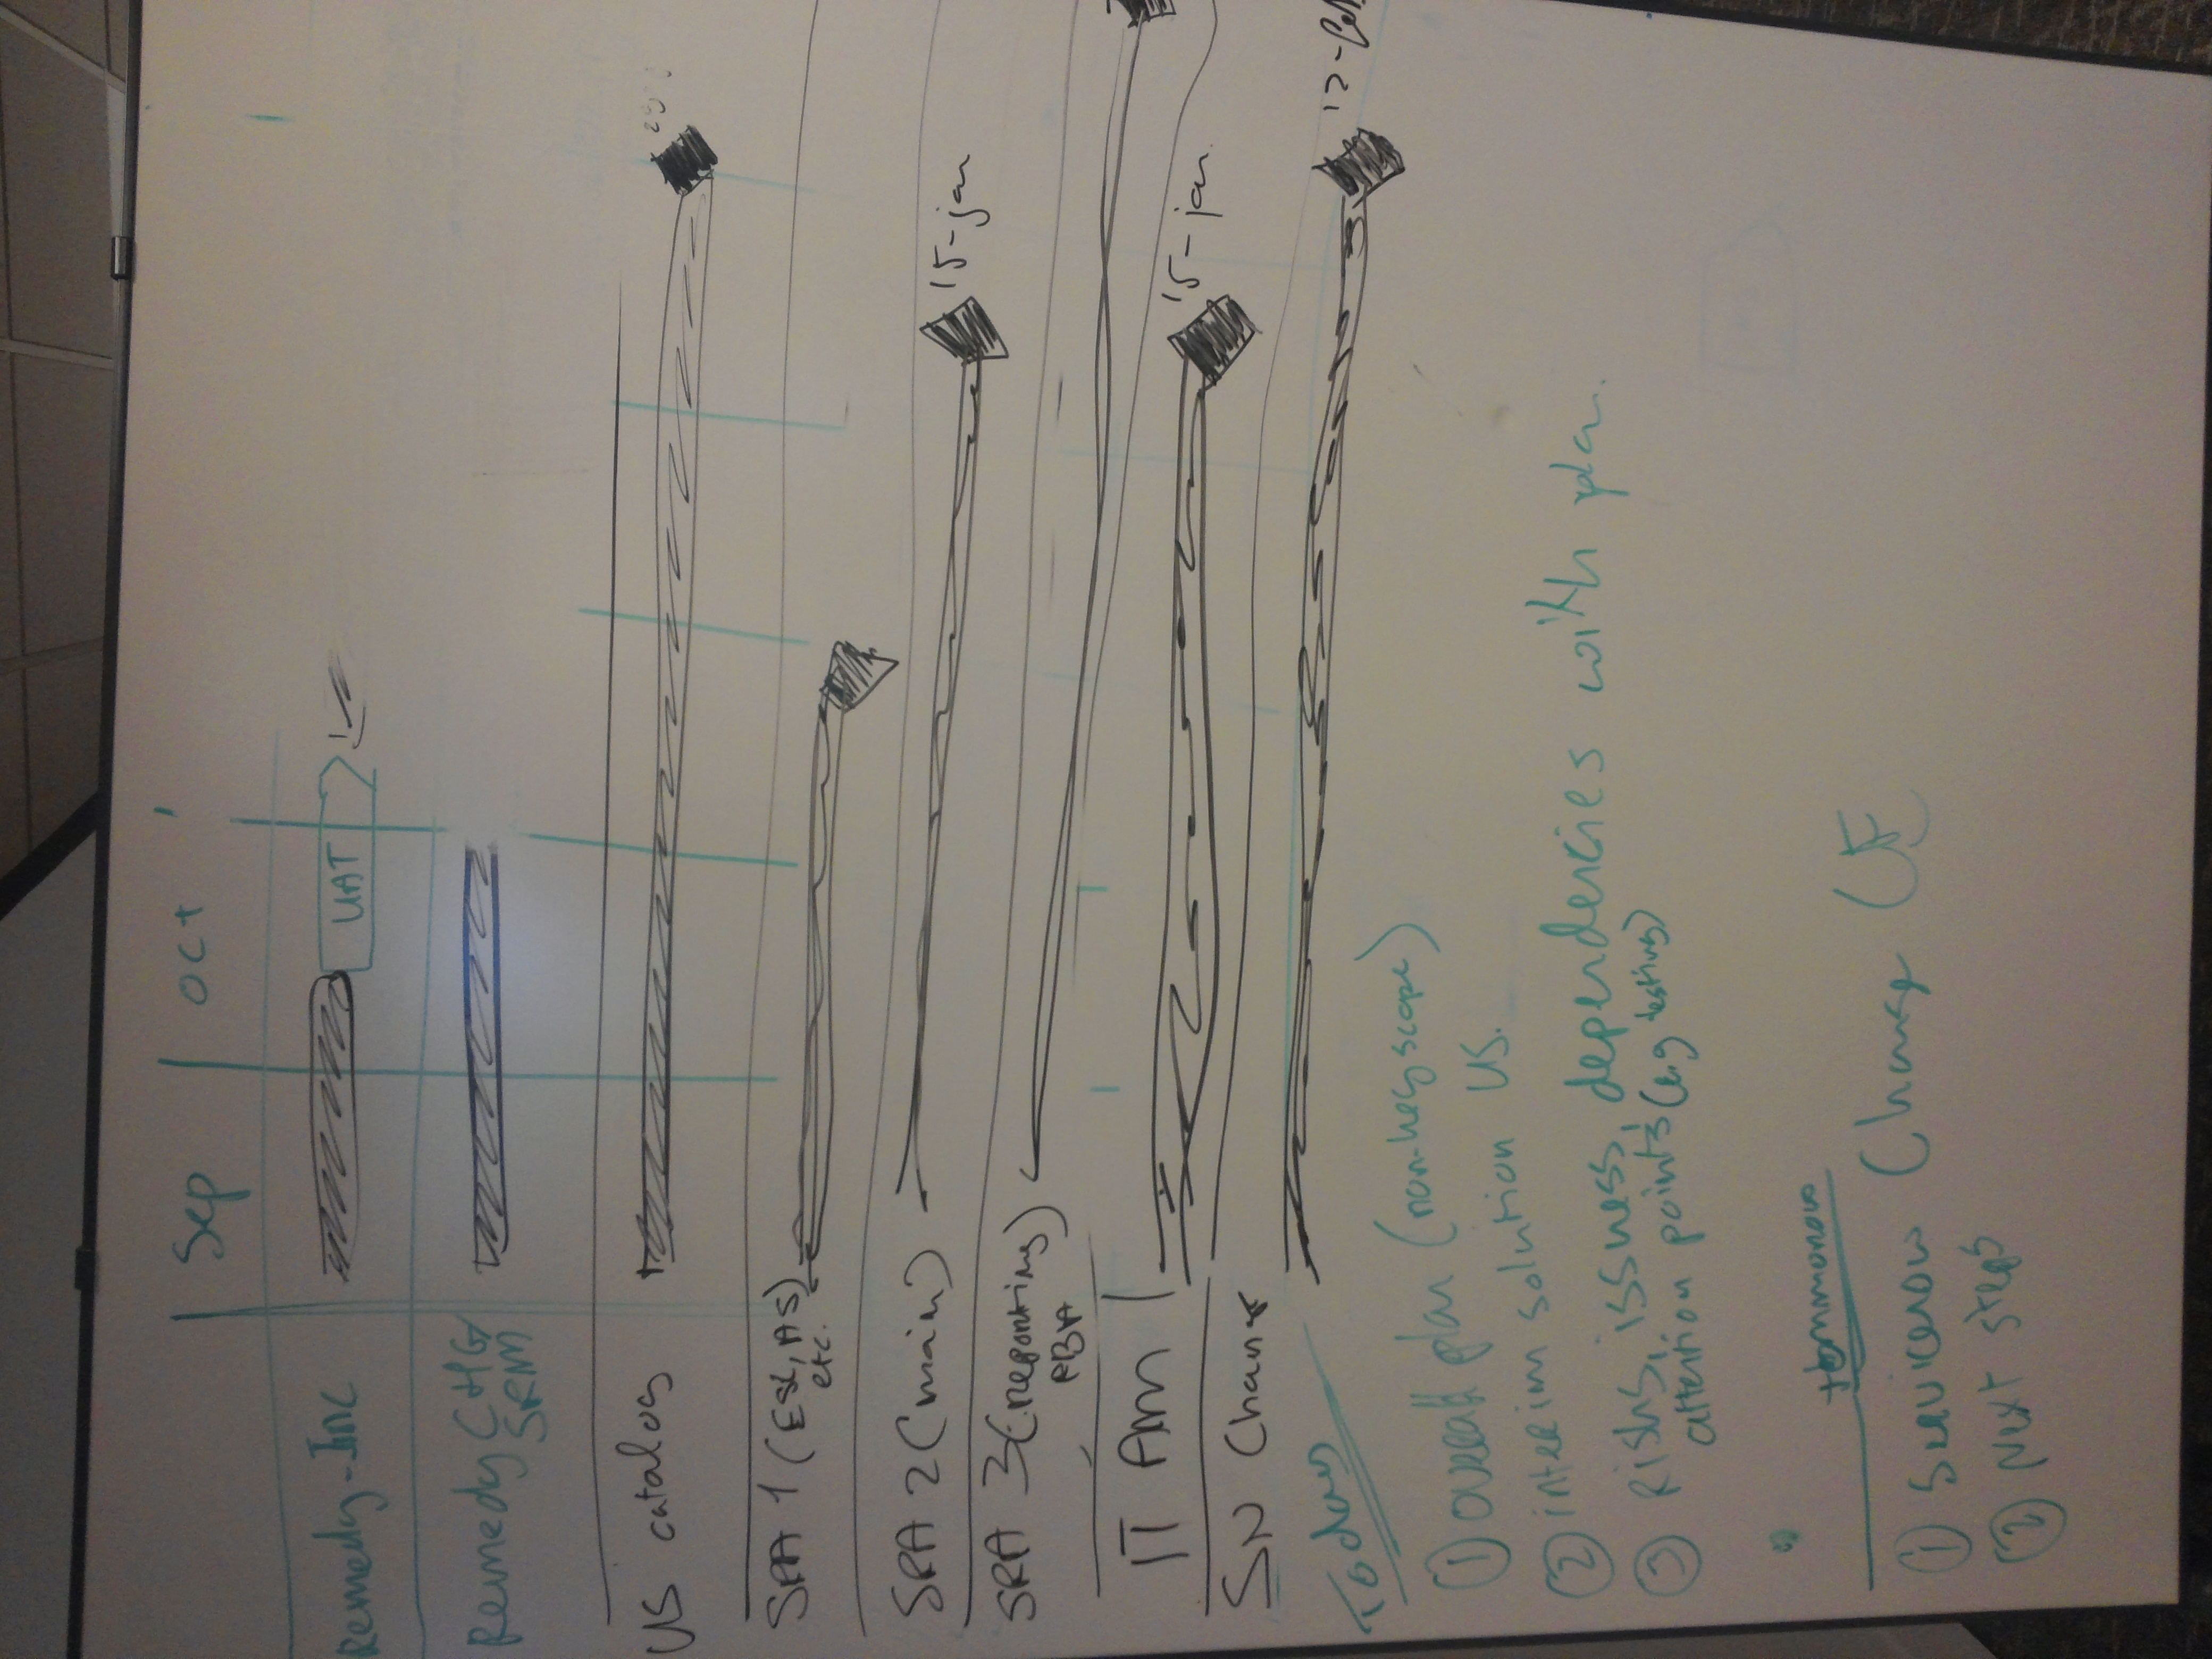 Sep oct
Remedy-Inc UAT
Remedy CHG/
SRM
US catalog
SRA 1 (ESL, AS)
etc.
SRA 2 (main) 15-jan
SRA 3 (reporting)
PBA
IT Am 15-jan.
SN Change
Today
① overall plan
② interim solution US.
③ Risks, issues, dependencies with plan.
attention points (e.g testing)
tommorow
① Servicenow Change
② Next steps